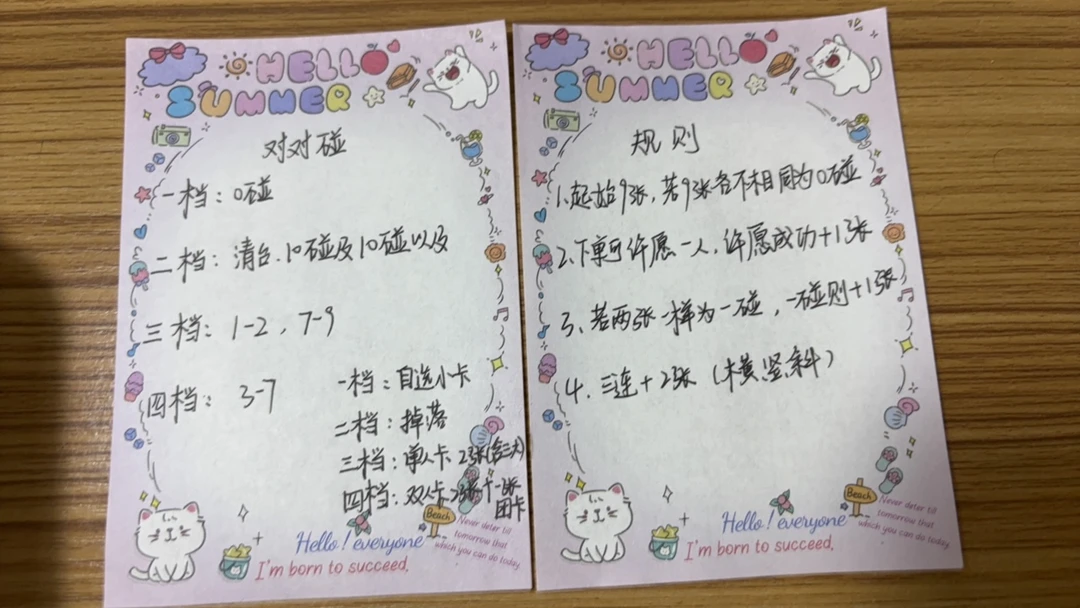 HELLO
SUMMER
对对碰
一档：0碰
二档：清台.10碰及10碰以及
三档：1-2，7-9
四档：3-7
一档：自选小卡
二档：掉落
三档：单人卡 23张(含三大)
四档：双人卡23张+一张
团卡
Hello! everyone
I'm born to succeed.
Beach
Never deter till
tomorrow that
which you can do today.
HELLO
SUMMER
规则
1.起始9张，若9张各不相同为0碰
2.下单可许愿一人，许愿成功+1张
3、若两张一样为一碰，一碰则+1张
4.三连+2张（横竖斜）
Hello! everyone
I'm born to succeed.
Beach
Never deter till
tomorrow that
which you can do today.